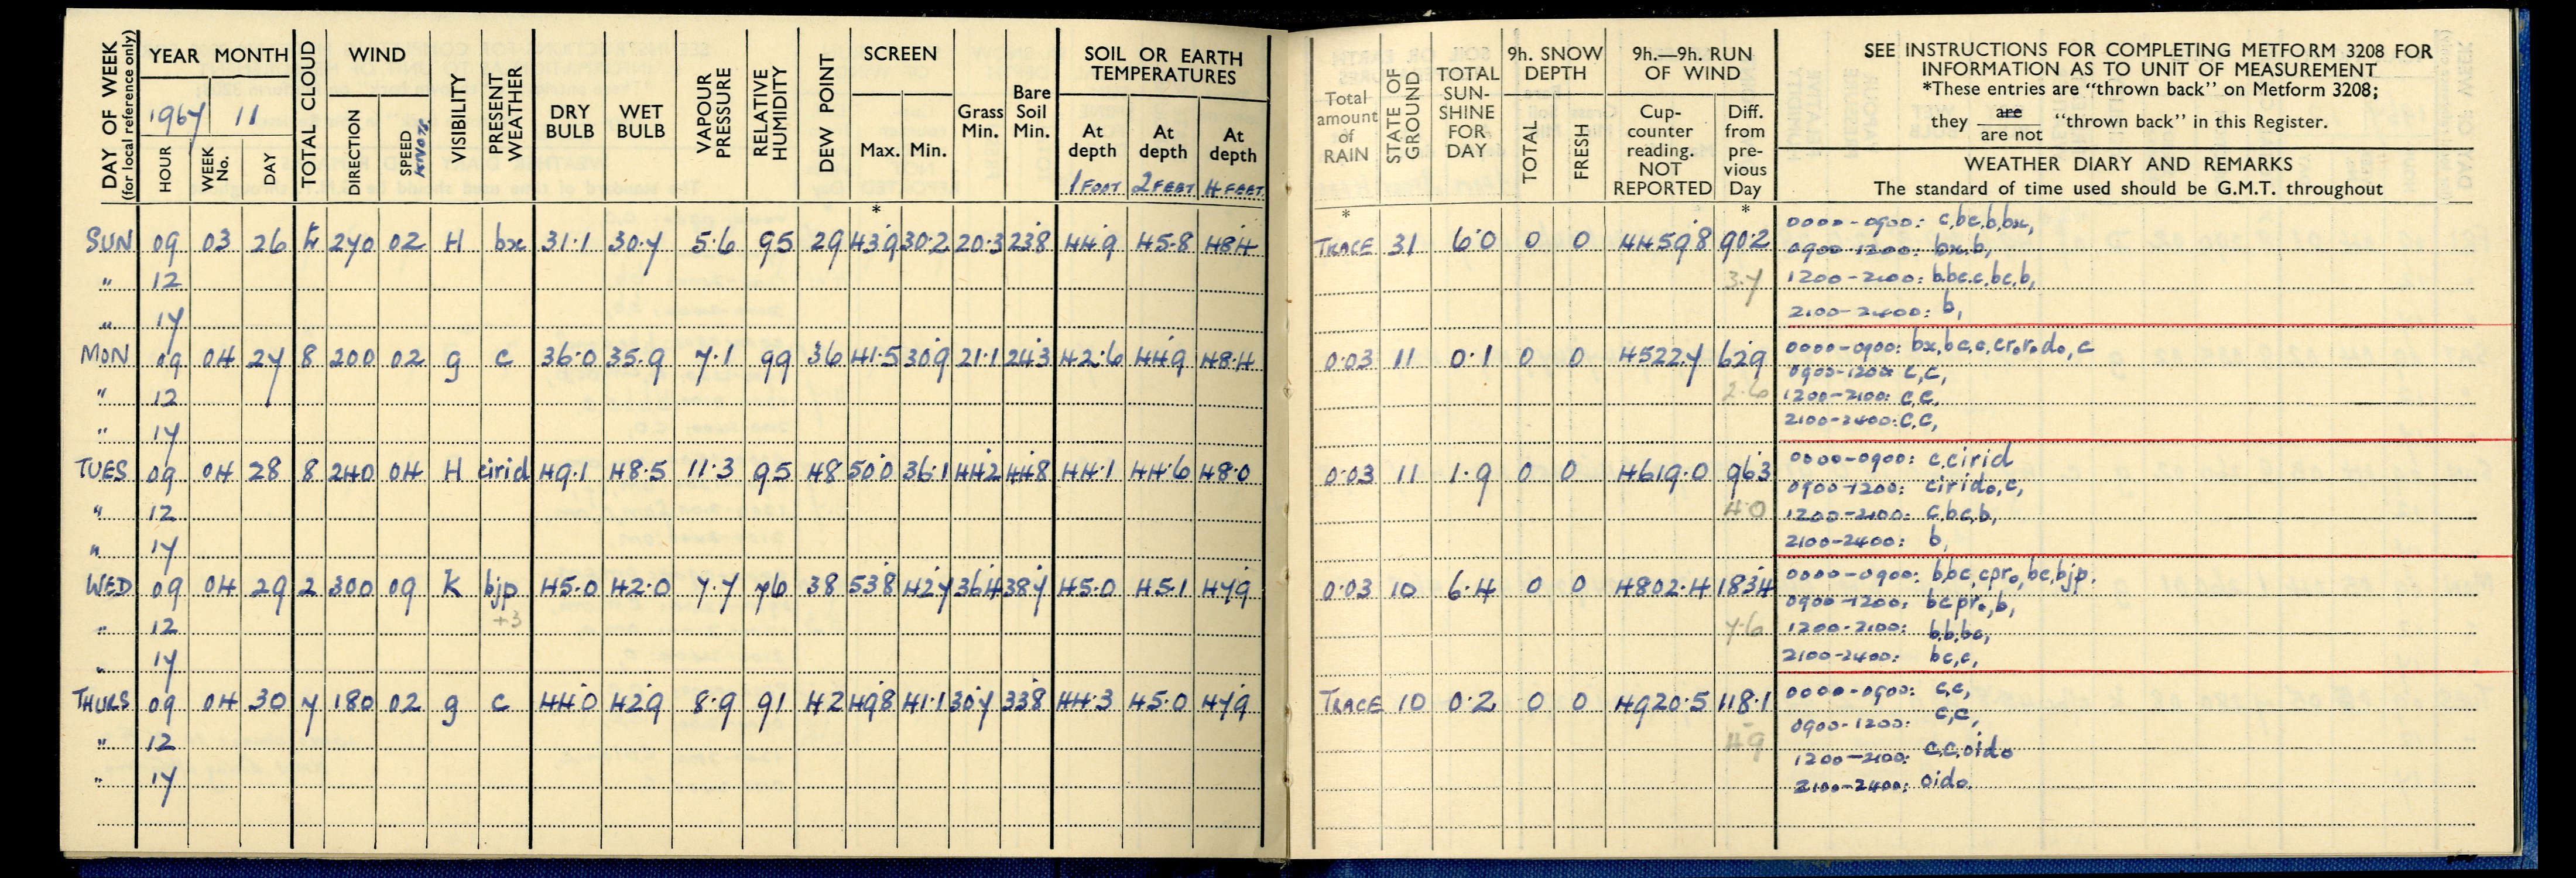 DAY OF WEEK (for local reference only)
YEAR MONTH
1967 11
HOUR
WEEK No.
DAY
TOTAL CLOUD
WIND
DIRECTION
SPEED KNOTS
VISIBILITY
PRESENT WEATHER
DRY BULB
WET BULB
VAPOUR PRESSURE
RELATIVE HUMIDITY
DEW POINT
SCREEN
Max. Min.
Grass Min.
Bare Soil Min.
SOIL OR EARTH TEMPERATURES
At depth 1 FOOT
At depth 2 FEET
At depth 4 FEET
Total amount of RAIN
STATE OF GROUND
TOTAL SUN-SHINE FOR DAY
9h. SNOW DEPTH
TOTAL
FRESH
9h.—9h. RUN OF WIND
Cup-counter reading. NOT REPORTED
Diff. from pre-vious Day
SEE INSTRUCTIONS FOR COMPLETING METFORM 3208 FOR
INFORMATION AS TO UNIT OF MEASUREMENT
*These entries are "thrown back" on Metform 3208;
they are / are not "thrown back" in this Register.
WEATHER DIARY AND REMARKS
The standard of time used should be G.M.T. throughout
* * *
SUN 09 03 26 240 02 H bx 31.1 30.7 5.6 95 29 43.9 30.2 20.3 23.8 44.9 45.8 48.4 TRACE 31 6.0 0 0 4459.8 90.2
0000-0900: c,bc,b,bx,
0900-1200: bx,b,
" 12 3.7
1200-2100: b,bc,c,bc,b,
" 17
2100-2400: b,
MON 09 04 27 8 200 02 g c 36.0 35.9 7.1 99 36 41.5 30.9 21.1 24.3 42.6 44.9 48.4 0.03 11 0.1 0 0 4522.7 62.9
0000-0900: bx,bc,c,cr₀,r₀,d₀,c
0900-1200: c,c,
" 12 2.6
1200-2100: c,c,
" 17
2100-2400: c,c,
TUES 09 04 28 8 240 04 H cirid 49.1 48.5 11.3 95 48 50.0 36.1 44.2 44.8 44.1 44.6 48.0 0.03 11 1.9 0 0 4619.0 96.3
0000-0900: c,cirid
0900-1200: cirid₀,c,
" 12 4.0
1200-2100: c,bc,b,
" 17
2100-2400: b,
WED 09 04 29 2 300 09 K bjp 45.0 42.0 7.7 76 38 53.8 42.7 36.4 38.7 45.0 45.1 47.9 0.03 10 6.4 0 0 4802.4 183.4
0000-0900: b,bc,cpr₀,bc,bjp.
+3
0900-1200: bcpr₀,b,
" 12 7.6
1200-2100: b,b,bc,
" 17
2100-2400: bc,c,
THURS 09 04 30 7 180 02 g c 44.0 42.9 8.9 91 42 49.8 41.1 30.7 33.8 44.3 45.0 47.9 TRACE 10 0.2 0 0 4920.5 118.1
0000-0900: c,c,
0900-1200: c,c,
" 12 4.9
1200-2100: c,c,oido
" 17
2100-2400: oido.